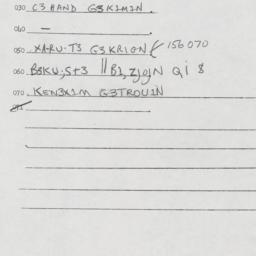 030 C3HAND G3K1M1N.
040 —
050 XA-RU-T3 G3KRION { 156070
060 B8KU,S+3 || B1,ZJOJN Qi 8
070 KEN3X1M G3TROU1N